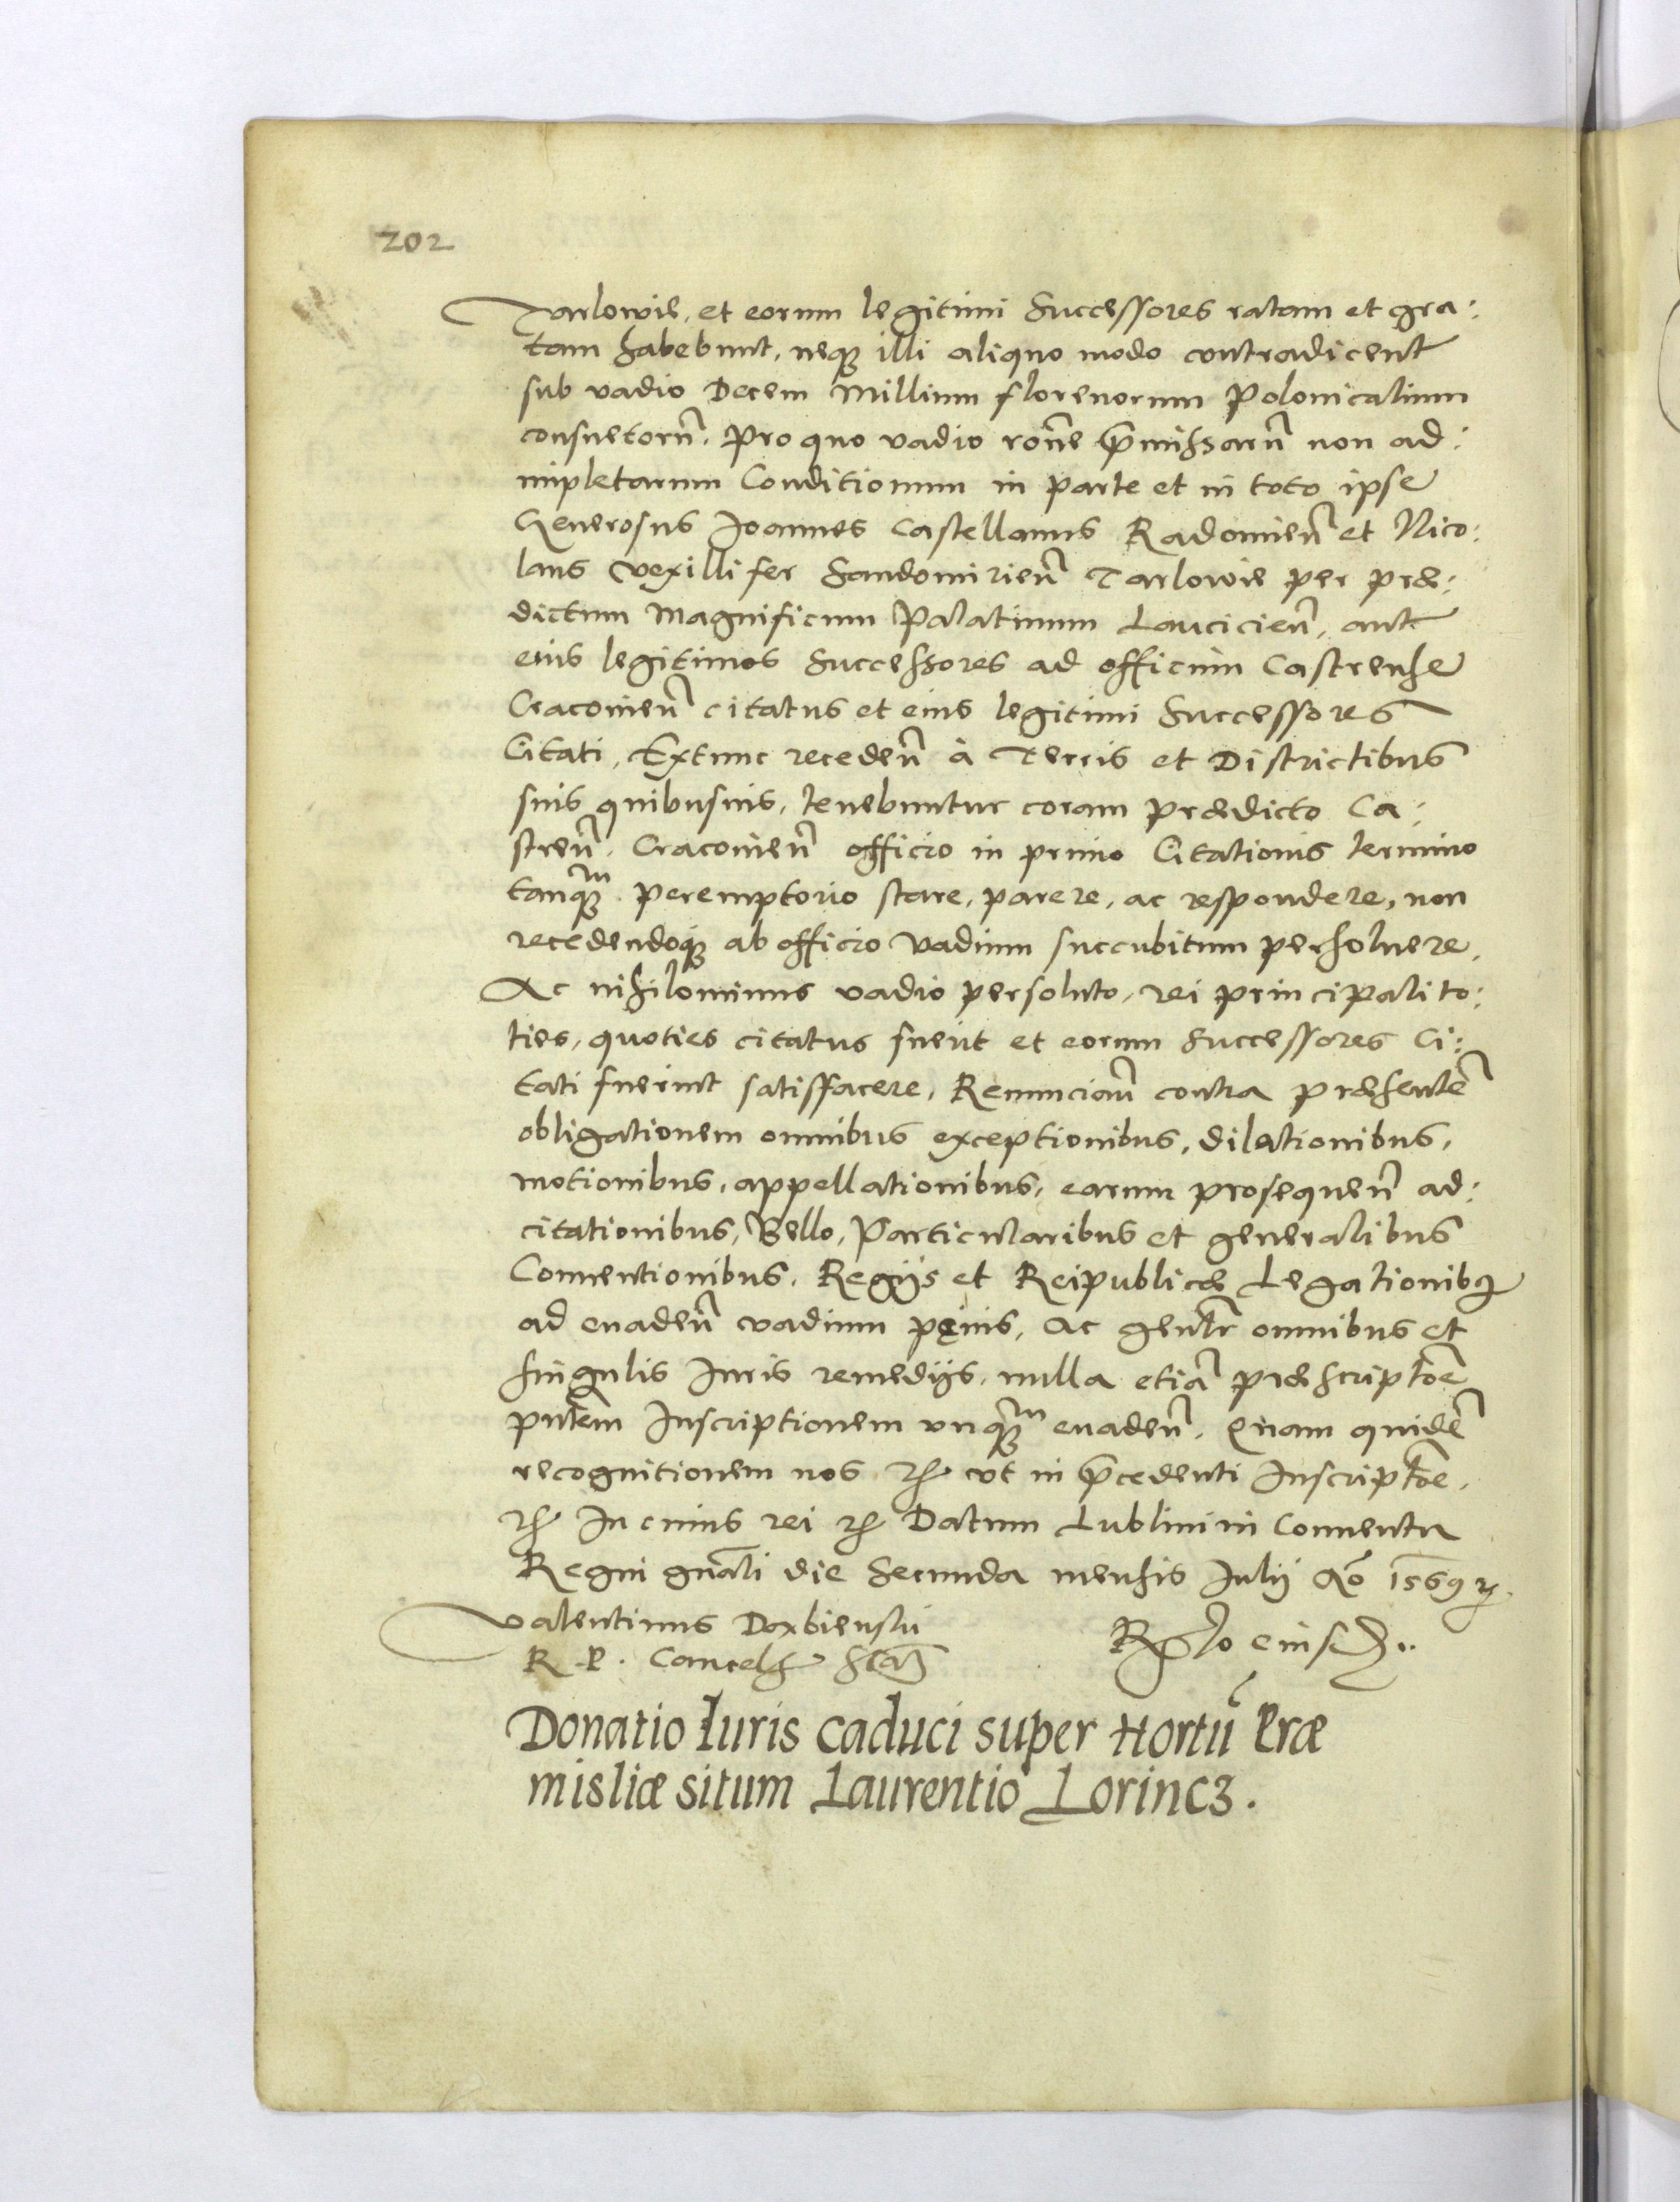 202
Tarlowie, et eorum legitimi Successores ratam et gra:
tam habebunt, neqꝫ illi aliquo modo contradicent
sub vadio Decem Millium florenorum Polonicalium
consuetorũ. Pro quo vadio rõne p̃missarũ non ad:
impletarum Conditionum in parte et in toto ipse
Generosus Joannes Castellanus Radomieñ et Nico:
laus Vexillifer Sandomirieñ Tarlowie per præ:
dictum Magnificum Palatinum Lancicieñ, aut
eius legitimos Successores ad officium Castrense
Cracovieñ citatus et eius legitimi Successores
Citati, Extunc recedeñ à Terris et Districtibus
suis quibusuis, tenebuntur coram prædicto Ca:
streñ. Cracovieñ officio in primo Citationis termino
tanqꝫm peremptorio stare, parere, ac respondere, non
recedendoqꝫ ab officio vadium succubitum persoluere.
Ac nihilominus vadio persoluto, rei principali to:
ties, quoties citatus fueit et eorum Successores Ci:
tati fuerint satisfacere, Renunciañ contra præsentẽ
obligationem omnibus exceptionibus, dilationibus,
motionibus, appellationibus, earum prosequeñ ad:
citationibus, Bello, Particularibus et generalibus
Conuentionibus, Regijs et Reipublicæ Legationibꝫ
ad euadeñ vadium pęnis, Ac geñtr omnibus et
singulis Iuris remedijs, nulla etiã præscriptõe
pñtem Inscriptionem vnqꝫm euadeñ. Quam quidẽ
recognitionem nos ꝛc̃ vt in p̃cedenti Inscriptõe,
ꝛc̃ In cuius rei ꝛc̃ Datum Lublini in Conuentu
Regni gñali die Secunda mensis Iulij Aõ 1569 ꝛ.
Valentinus Dąxbienski
R. P. Cancels
Donatio Iuris caduci super Hortũ Præ
misliæ situm Laurentio Lorincz.